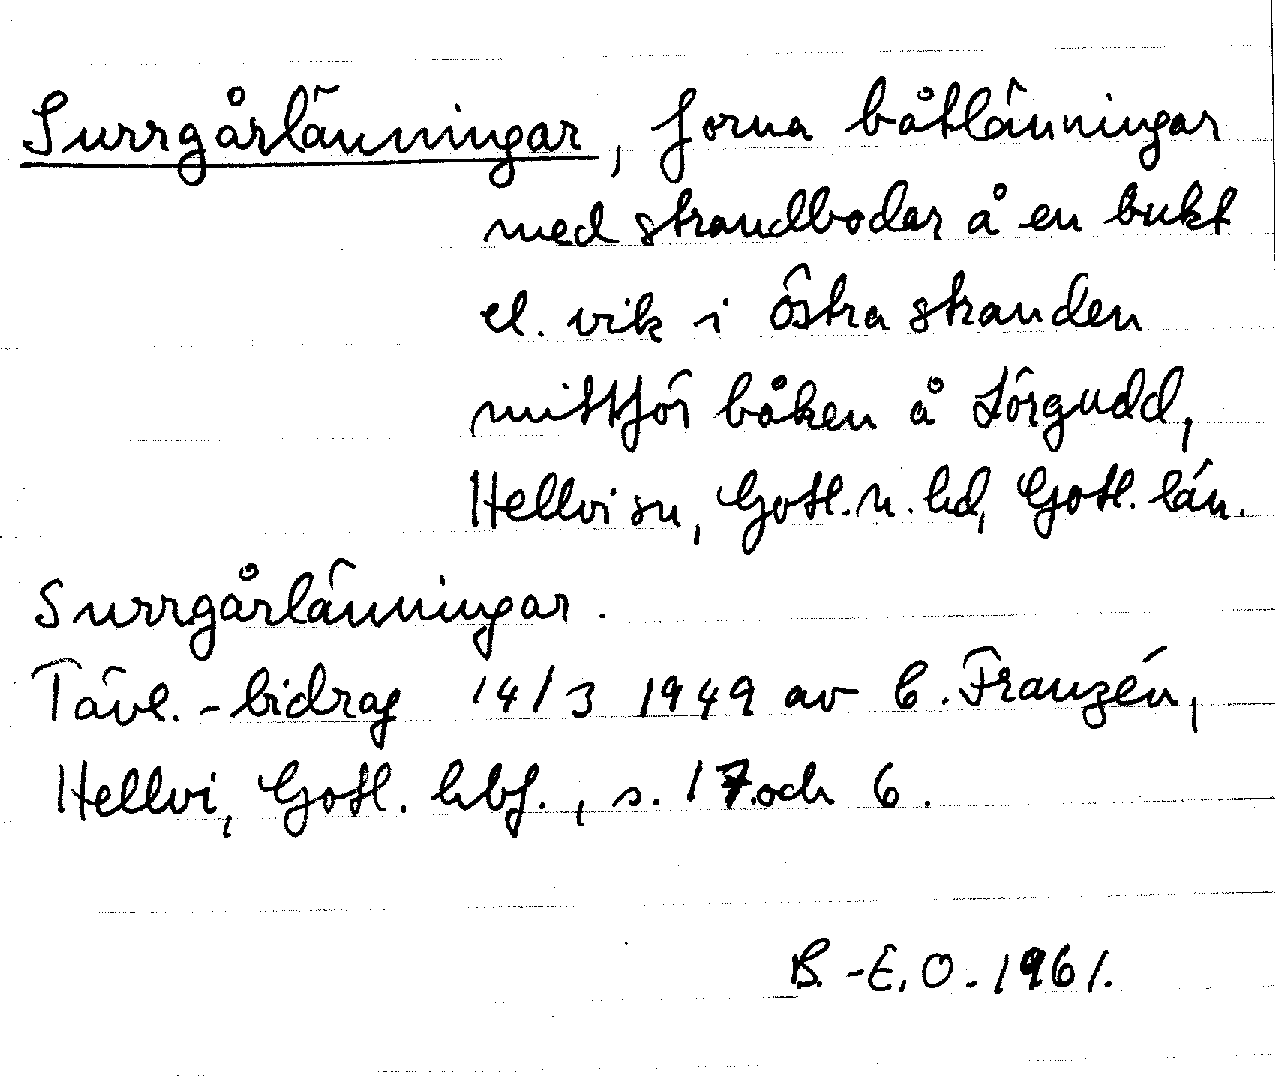 Surrgårlänningar, forna båtlänningar
med strandbodar å en bukt
el. vik i östra stranden
mittför båken å Lörgudd,
Hellvi sn, Gotl. n. hd, Gotl. län.
Surrgårlänningar.
Tävl.-bidrag 14/3 1949 av C. Franzén,
Hellvi, Gotl. hbf., s. 17 och 6.
B.-E. O. 1961.